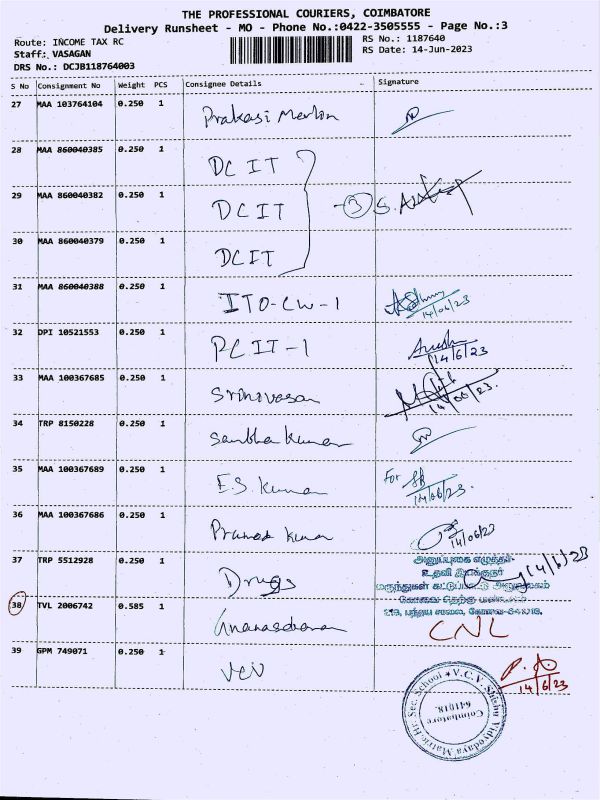 THE PROFESSIONAL COURIERS, COIMBATORE
Delivery Runsheet - MO - Phone No.:0422-3505555 - Page No.:3
Route: INCOME TAX RC
RS No.: 1187640
Staff: VASAGAN
RS Date: 14-Jun-2023
DRS No.: DCJB118764003
S No Consignment No Weight PCS Consignee Details Signature
27 MAA 103764104 0.250 1 Prakasi Merlon
28 MAA 860040385 0.250 1 DCIT
29 MAA 860040382 0.250 1 DCIT - 3 S.
30 MAA 860040379 0.250 1 DCIT
31 MAA 860040388 0.250 1 ITO-CW-1
14/06/23
32 DPI 10521553 0.250 1 PCIT-1
14/6/23
33 MAA 100367685 0.250 1 Srinivasan
14/06/23.
34 TRP 8150228 0.250 1 Kumar
35 MAA 100367689 0.250 1 E.S. Kumar For
14/06/23.
36 MAA 100367686 0.250 1 Kumar
14/06/23
37 TRP 5512928 0.250 1 Drugs 14/6/23
அனுப்புகை எழுத்தர்
உதவி இயக்குநர்
மருந்துகள் கட்டுப்பாட்டு அலுவலகம்
கோவை தெற்கு மண்டலம்
பந்தய சாலை, கோவை-641018.
38 TVL 2006742 0.585 1 CNL
39 GPM 749071 0.250 1 VCV
14/6/23
V.C.V. Shishu Vidyodaya Matric. Hr. Sec. School
Coimbatore
641018.